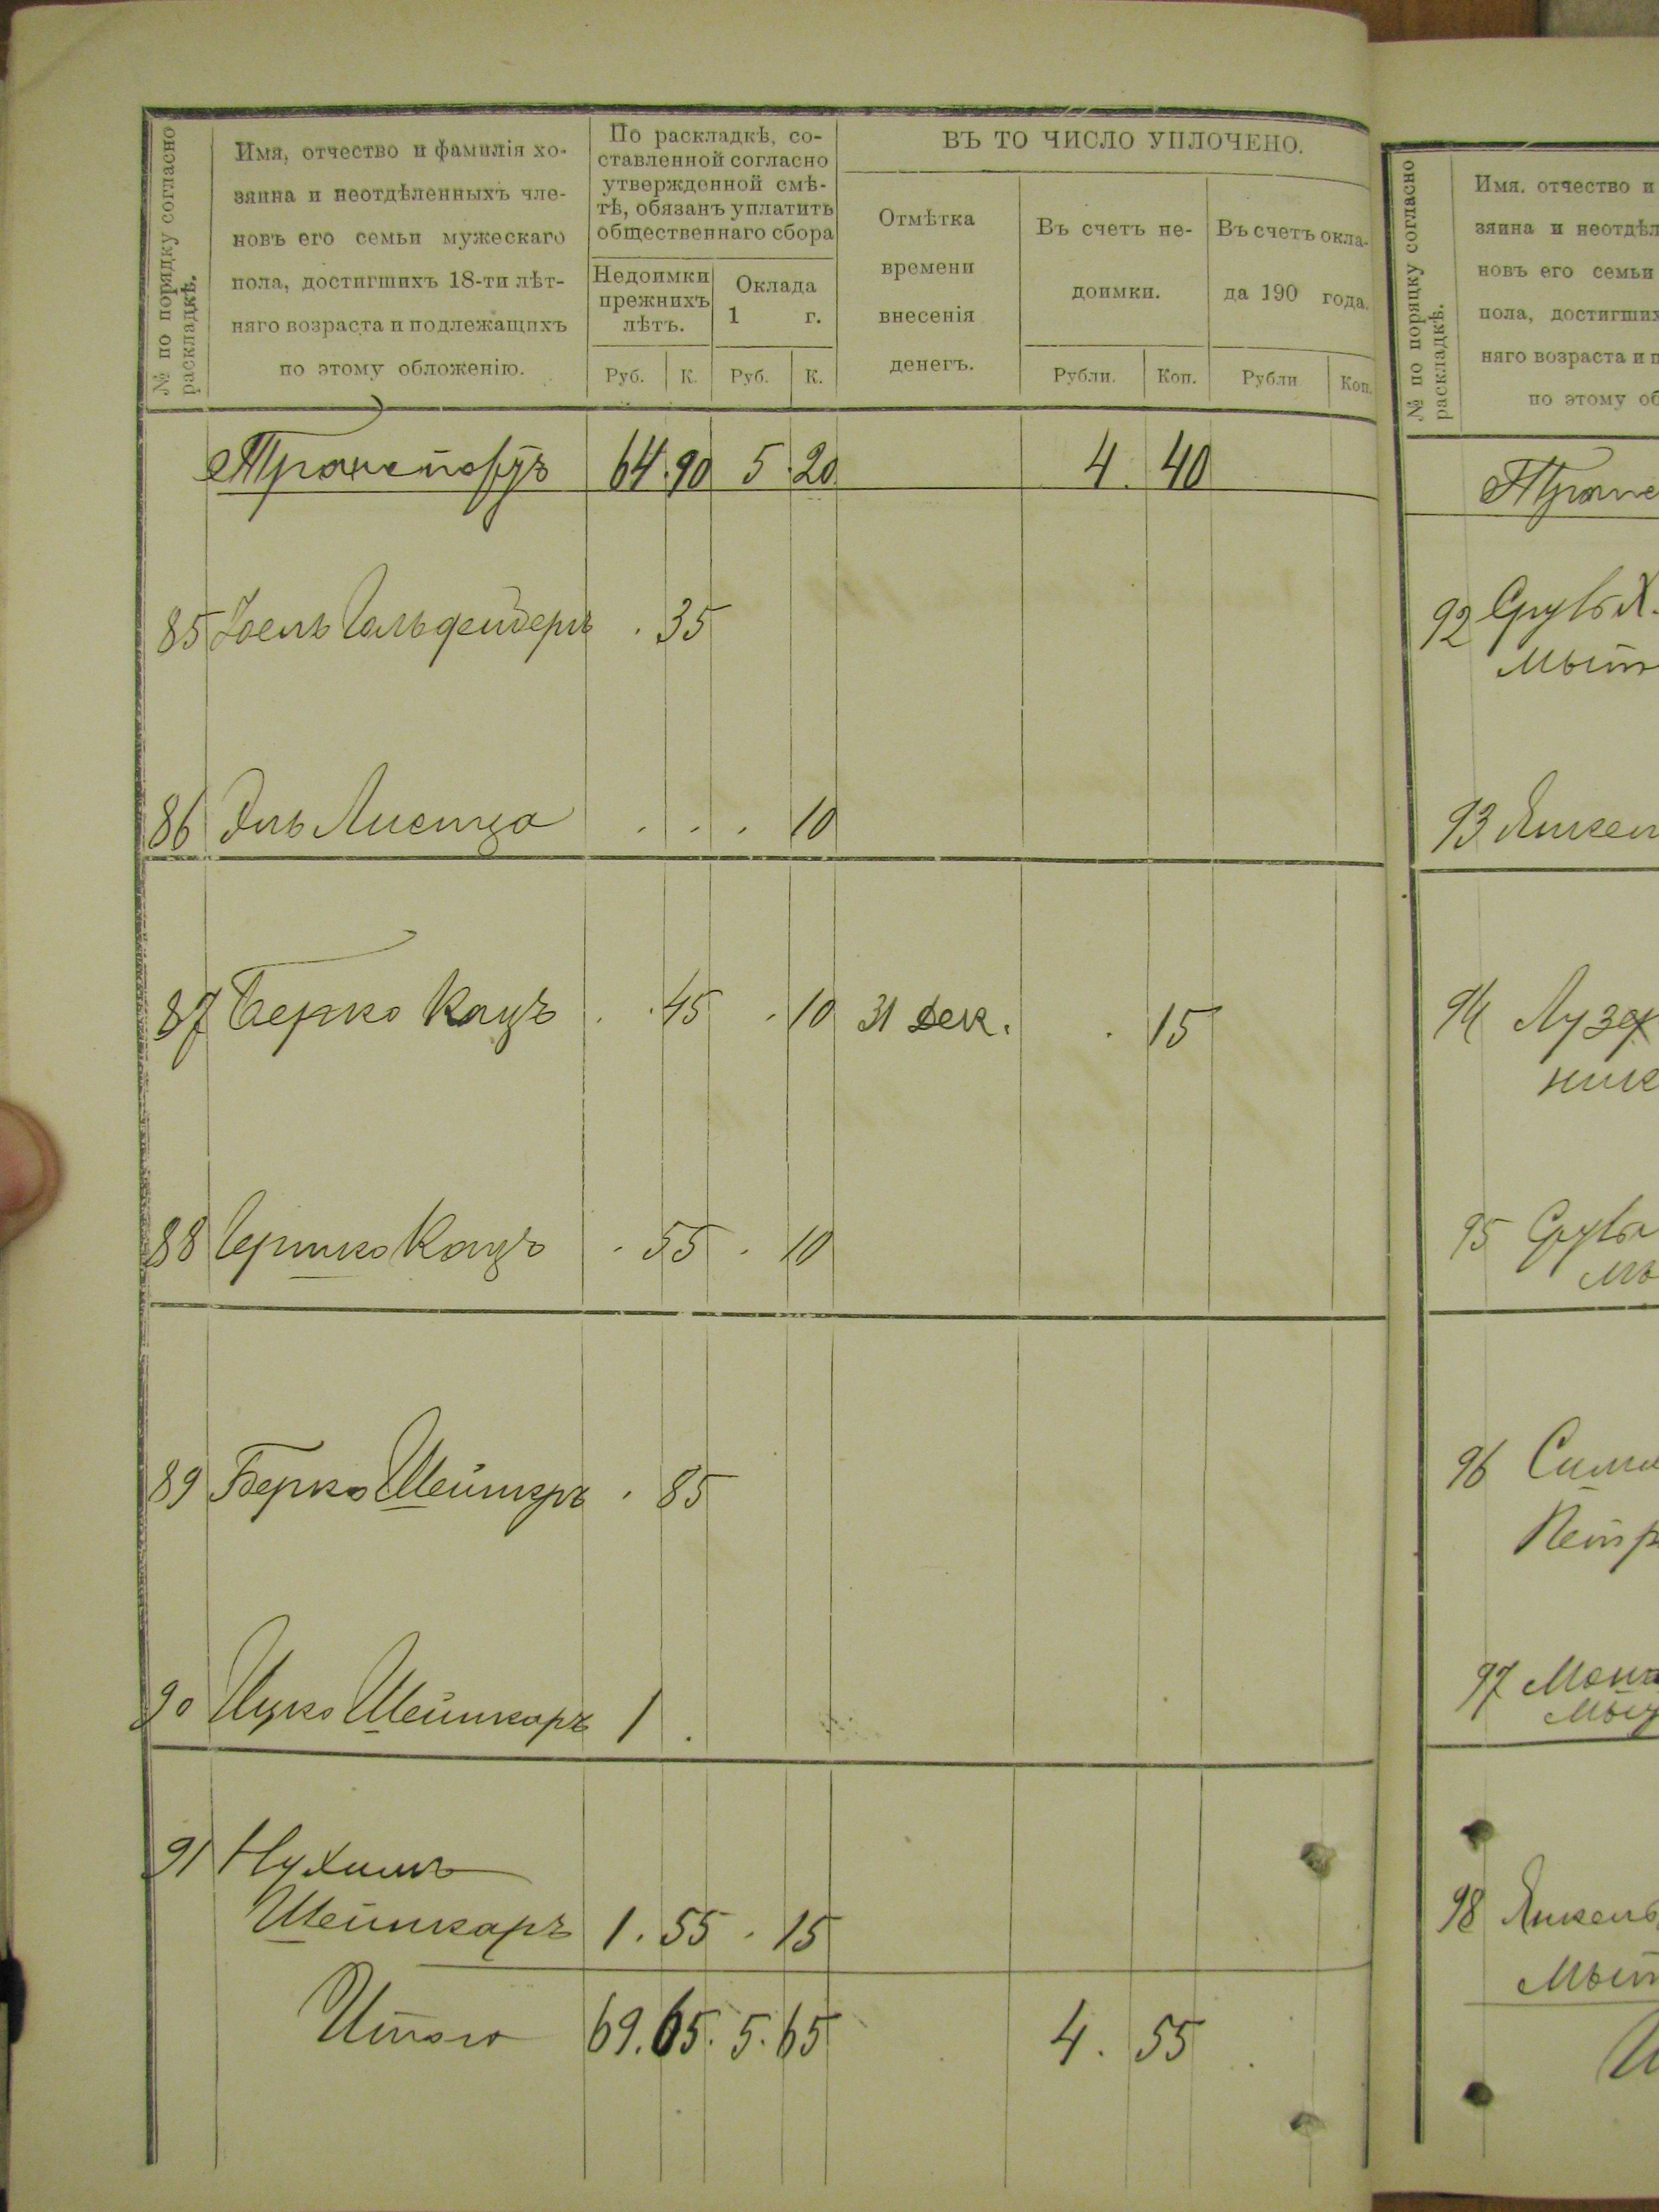 № по порядку согласно
раскладкѣ.
Имя, отчество и фамилія хо-
зяина и неотдѣленныхъ чле-
новъ его семьи мужескаго
пола, достигшихъ 18-ти лѣт-
няго возраста и подлежащихъ
по этому обложенію.
По раскладкѣ, со-
ставленной согласно
утвержденной смѣ-
тѣ, обязанъ уплатить
общественнаго сбора
Недоимки
прежнихъ
лѣтъ.
Оклада
1 г.
Руб. К. Руб. К.
ВЪ ТО ЧИСЛО УПЛОЧЕНО.
Отмѣтка
времени
внесенія
денегъ.
Въ счетъ не-
доимки.
Въ счетъ окла-
да 190 года.
Рубли. Коп. Рубли Коп.
Транспортъ 64.90 5.20 4.40
85 Іоель . 35
86 Эль Листца . . . 10
87 Берко Кацъ . . 45 . 10 31 Дек. . 15
88 Гершко Кацъ . 55 . 10
89 Берко Шейнкаръ . 85
90 Ицко Шейнкаръ 1 .
91 Нухимъ
Шейнкаръ 1. 55 . 15
Итого 69.65. 5.65 4. 55
№ по порядку согласно
раскладкѣ.
Имя. отчество и
зяина и неотдѣл
новъ его семьи
пола, достигших
няго возраста и п
по этому об
Транс
92 Сруль Х.
Мыт
93 Янкел
94 Лузер
ник
95 Сруль
Мы
96
Петр
97
98 Янкель
Мыт